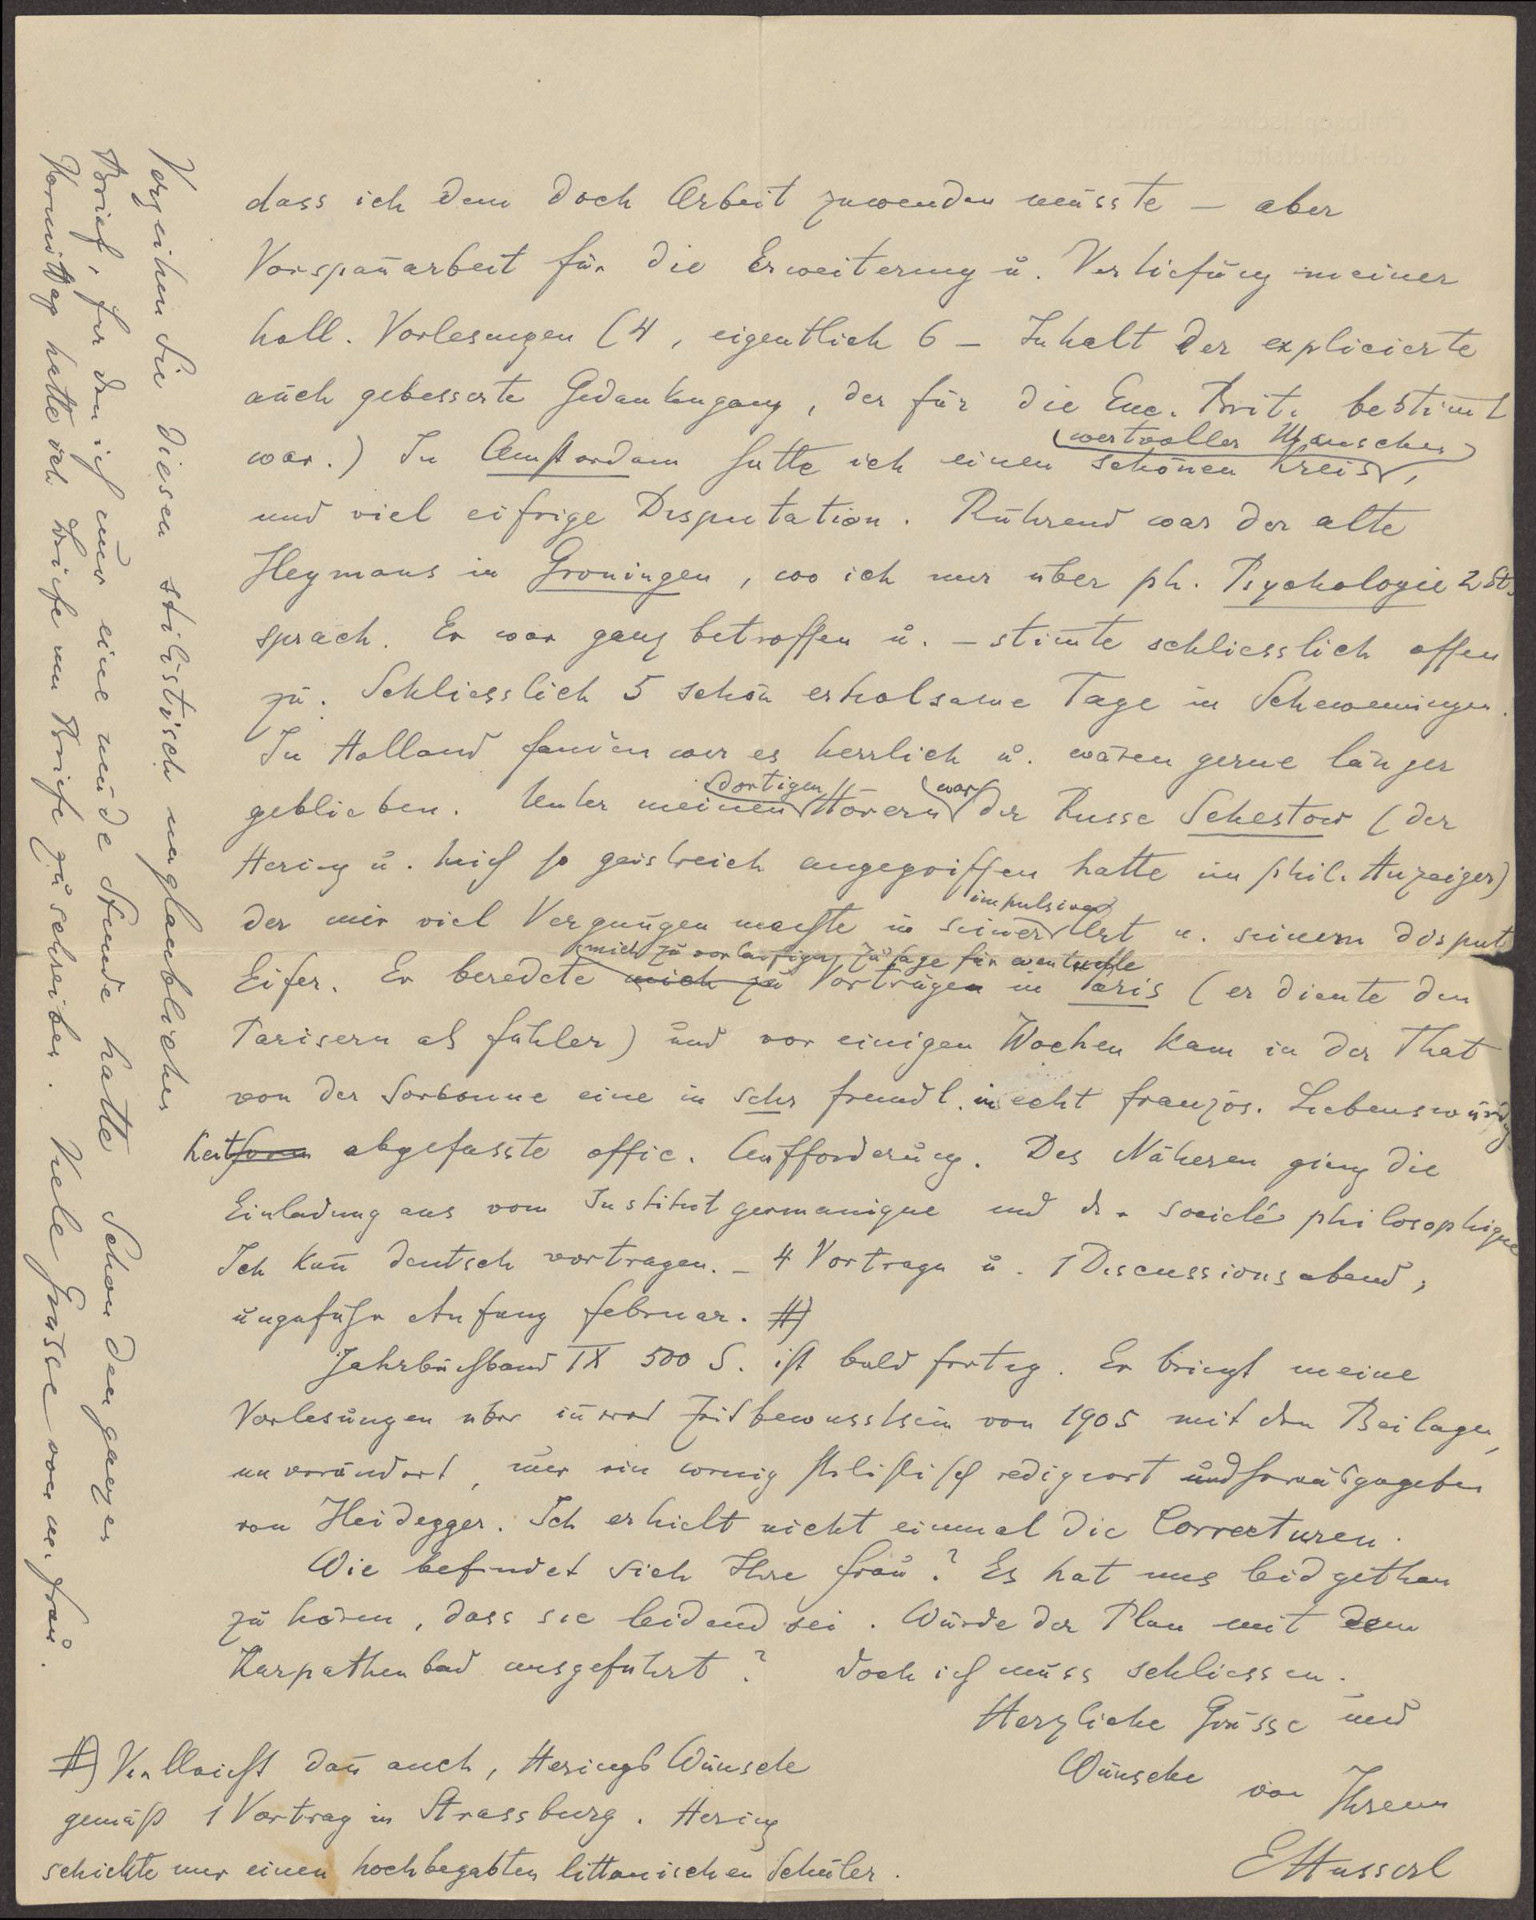 dass ich dem doch Arbeit zuwenden müsste – aber
Vorspan̄arbeit für die Erweiterung u. Vertiefung meiner
holl. Vorlesungen (4, eigentlich 6 – Inhalt der explicierte
auch gebesserte Gedankengang, der für die Enc. Brit. bestim̄t
war.) In Amsterdam hatte ich einen schönen Kreis wertvoller Menschen,
und viel eifrige Disputation. Rührend war der alte
Heymans in Groningen, wo ich nur über ph. Psychologie 2 St.
sprach. Er war ganz betroffen u. – stim̄te schliesslich offen
zu. Schliesslich 5 schön erholsame Tage in Scheweningen.
In Holland fanden wir es herrlich u. wären gerne länger
geblieben. Unter meinen dortigen Hörern war der Russe Schestow (der
Hering u. mich so geistreich angegriffen hatte im phil. Anzeiger)
der mir viel Vergnügen machte in seiner impulsiven Art u. seinem disput.
Eifer. Er beredete mich zu mich zu vorläufiger Zusage für eventuelle Vorträgen in Paris (er diente den
Parisern als Fühler) und vor einigen Wochen kam in der That
von der Sorbonne eine in sehr freundl. in echt französ. Liebenswürdig
keit form abgefasste offic. Aufforderung. Des Näheren ging die
Einladung aus vom Institut germanique und der société philosophique
Ich kan̄ deutsch vortragen. – 4 Vorträge u. 1 Discussionsabend,
ungefähr Anfang Februar. #)
Jahrbuchband IX 500 S. ist bald fertig. Er bringt meine
Vorlesungen über inneres Zeitbewusstsein von 1905 mit den Beilagen,
unverändert, nur ein wenig stilistisch redigiert und herausgegeben
von Heidegger. Ich erhielt nicht einmal die Correcturen.
Wie befindet sich Ihre Frau? Es hat uns leid gethan
zu hören, dass sie leidend sei. Wurde der Plan mit dem
Karpathenbad ausgeführt? Doch ich muss schliessen.
Herzliche Grüsse und
Wünsche von Ihrem
EHusserl
#) Vielleicht dan̄ auch, Herings Wünsche
gemäß 1 Vortrag in Strassburg. Hering
schickte mir einen hochbegabten littauischen Schüler.
Verzeihen Sie diesen stilistisch unglaublichen
Brief, für den ich nur eine müde Stunde hatte Schon den ganzen
Vormittag hatte ich Briefe um Briefe zu schreiben. Viele Grüsse von m. Frau.